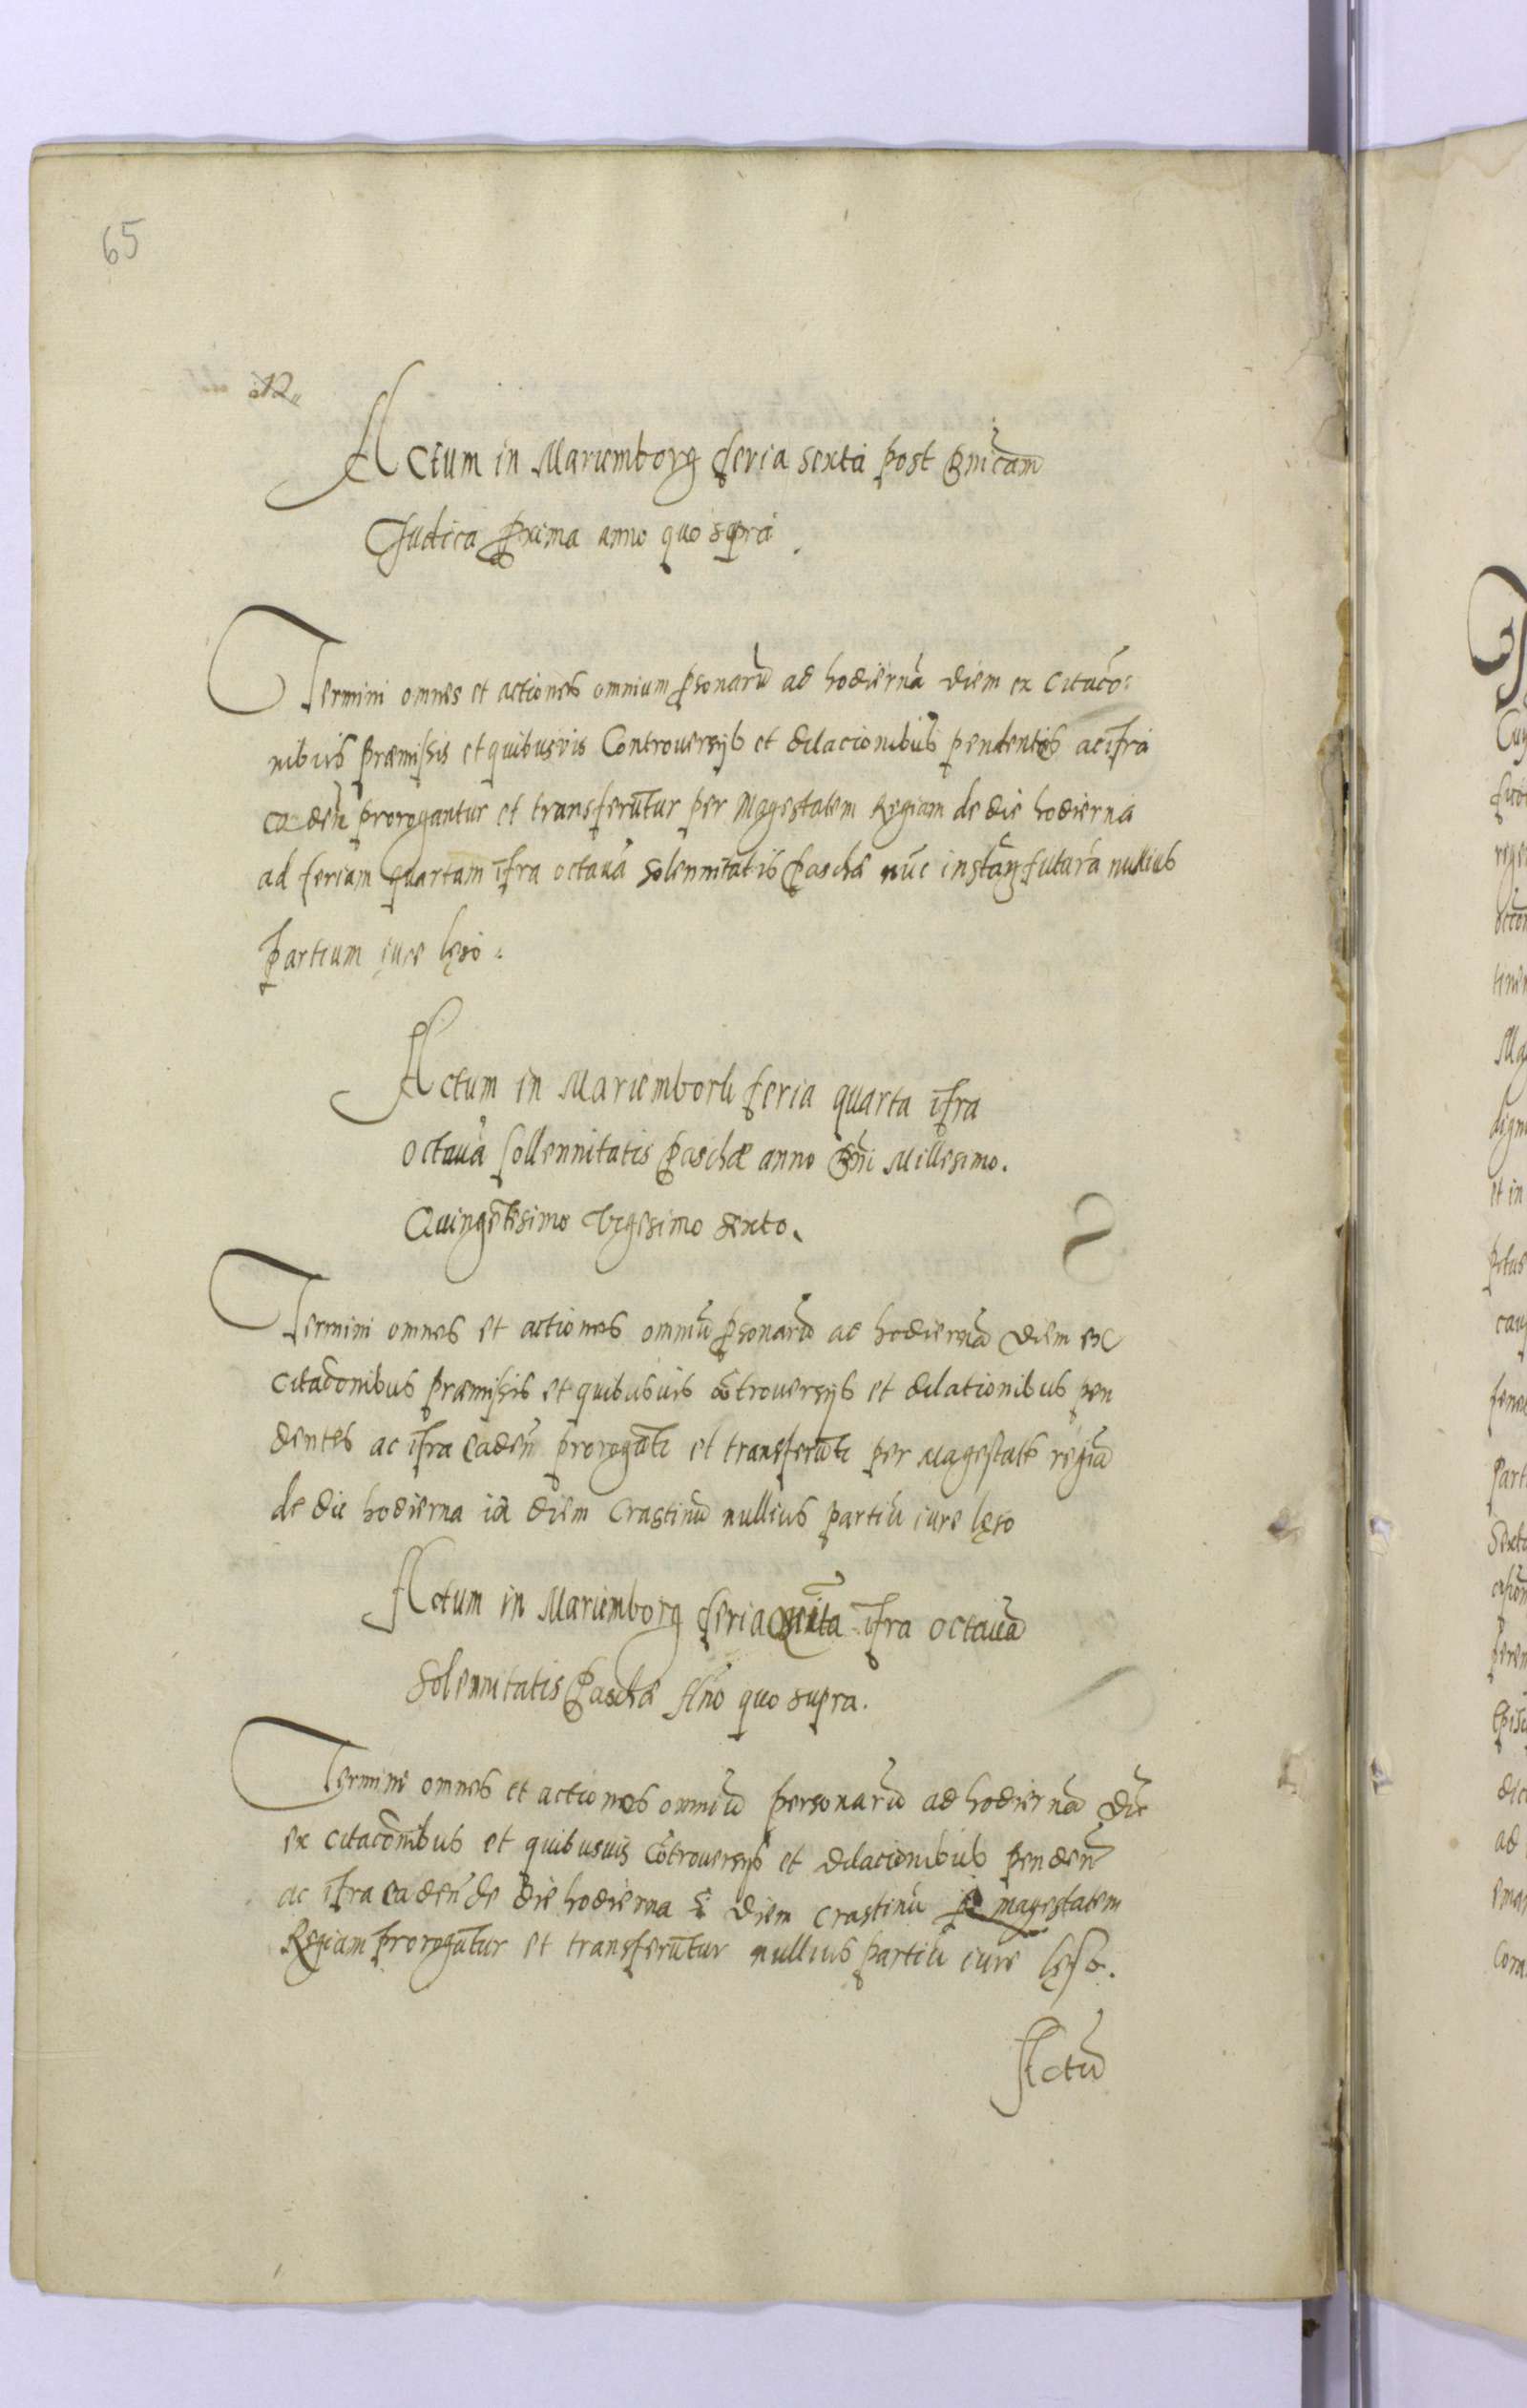 65
Actum in Mariemborg feria sexta post Dnicam
Judica pxima anno quo supra.
Termini omnes et actiones omnium psonarū ad hodiernā diem ex citacō:
nibus præmissis et quibusvis Controversijs et dilacionibus pendentes ac ifra
cadeñ prorogantur et transferūtur per Magestatem Regiam de die hodierna
ad feriam quartam ifra octavā Solennitatis Paschæ nūc instañ futurā nullius
partium iure lęso.
Actum in Mariemborh feria quarta ifra
octavā sollennitatis Paschæ anno Dñi Millesimo.
Quingētesimo Vigesimo sexto.
Termini omnes et actiones omniū psonarū ad hodiernā diem ex
citacōnibus præmissis et quibusvis cōtroversijs et dilationibus pen
dentes ac ifra cadeñ prorogāti et transferūti per Magestatē regiā
de die hodierna in diem Crastinū nullius partiū iure lęso
Actum in Mariemborg feria ifra octavā
Solennitatis Paschæ Año quo supra.
Termini omnes et actiones omniū personarū ad hodiernā diē
ex citacōnibus et quibusvis cōtroversijs et dilacionibus pendeñ
ac ifra cadeñ de die hodierna ī diem crastinū p magestatem
Regiam prorogātur et transferūtur nullius partiū iure lęso.
Actū